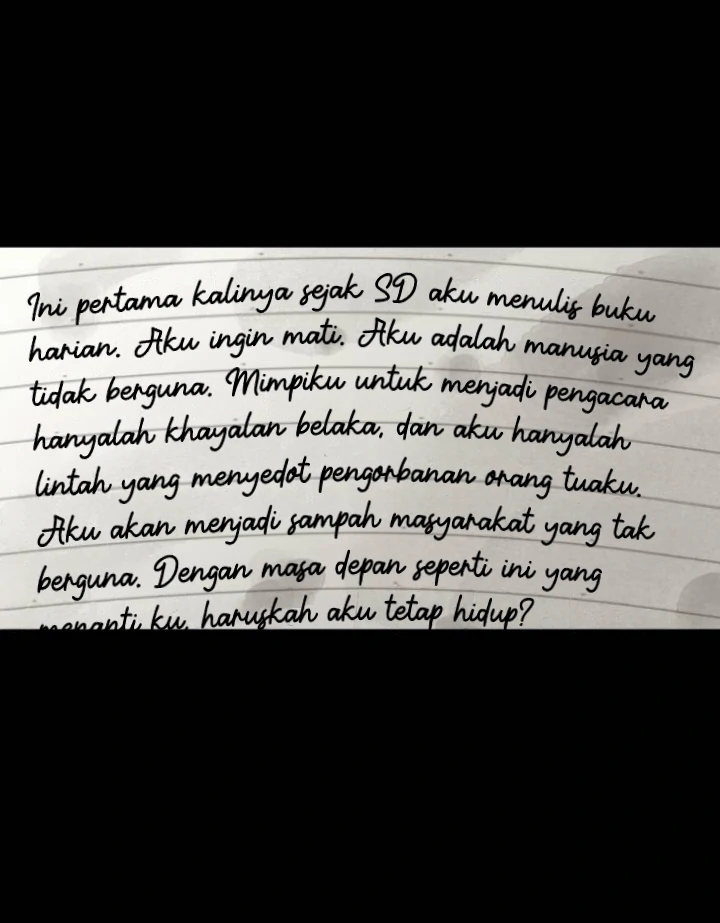 Ini pertama kalinya sejak SD aku menulis buku
harian. Aku ingin mati. Aku adalah manusia yang
tidak berguna. Mimpiku untuk menjadi pengacara
hanyalah khayalan belaka, dan aku hanyalah
lintah yang menyedot pengorbanan orang tuaku.
Aku akan menjadi sampah masyarakat yang tak
berguna. Dengan masa depan seperti ini yang
menanti ku, haruskah aku tetap hidup?